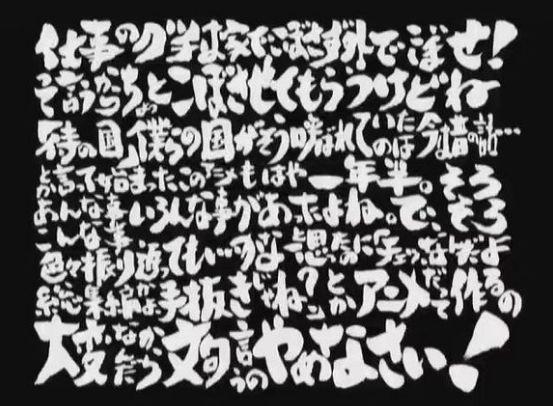 仕事のグチは家でこぼさず外でこぼせ!
って言うからちょっとこぼさせてもらうけどね
「侍の国」僕らの国がそう呼ばれていたのは今は昔の話…
とか言って始まったこのアニメもはや一年半。
あんな事こんな事いろんな事があったよね。で、そろそろ
色々振り返ってもいーかなと思ったのに「チッ、なんだよ
総集編かよ、手抜きじゃね?」とかアニメだって作るの
大変なんだから文句言うのやめなさい!